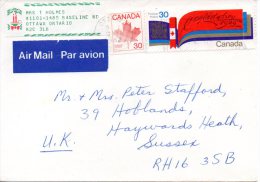 MRS T HOLMES
#1101-1485 BASELINE RD
OTTAWA ONTARIO
K2C 3L8
CANADA
30
30
Canada
Air Mail Par avion
Mr + Mrs. Peter Stafford,
39 Hoblands,
Haywards Heath,
Sussex
U.K.
RH16 3SB